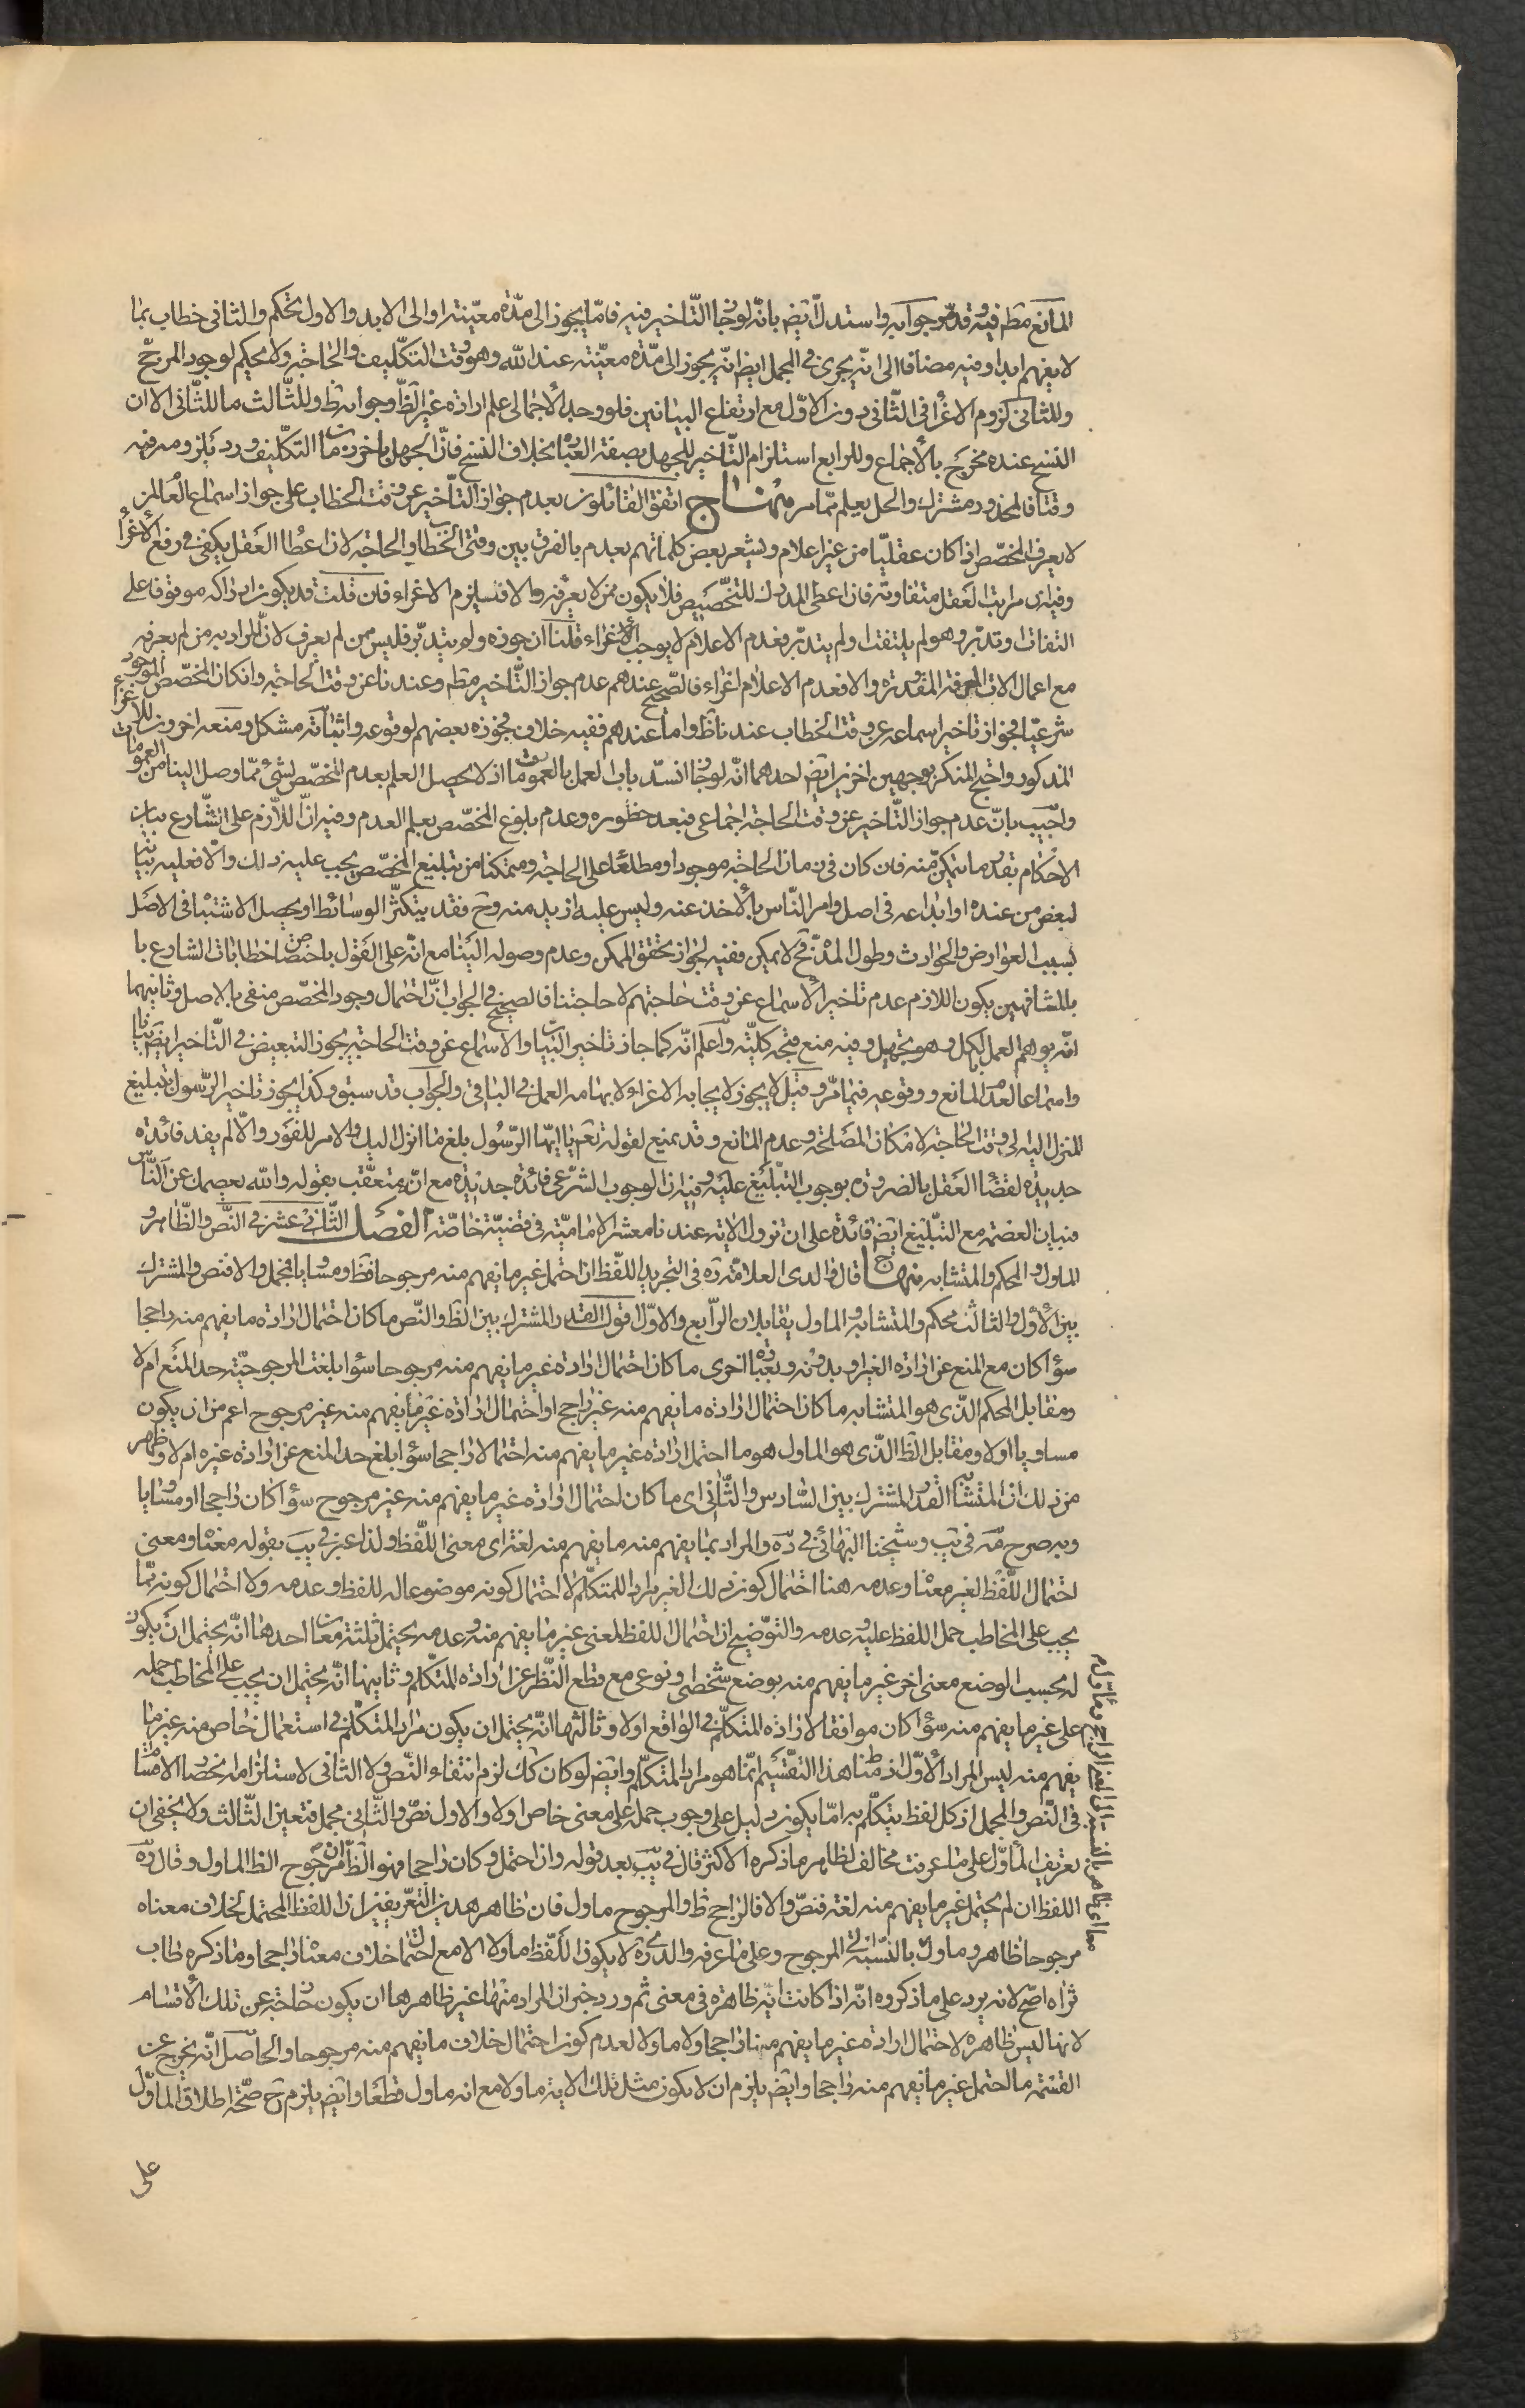 المانع مطم فيه وقد مرّ جوابه واستدلّ ايضم بانّه لو جاز التّاخير فيه فامّا يجوز الى مدّة معيّنة او الى الابد والاول تحكم والثانى خطاب بما
لا يفهم ابدا وفيه مضافا الى انّه يجرى فى المجمل ايضم انّه يجوز الى مدّة معيّنة عند الله وهو وقت التكليف والحاجة ولا تحكيم لوجود المرجّح
وللثانى لزوم الاغراء فى الثّانى دون الاوّل مع ارتفاع البيانين فلو وجد الأجمالى علم ارادة غير الظّ وجوابه ظ وللثّالث ما للثّانى الا ان
النسخ عنده مخرج بالأجماع وللرابع استلزام التّاخير للجهل بصفة العبادة بخلاف النسخ فانّ الجهل باخر زمان التكليف ورد بلزومه فيه
وقتا فالمحذور مشترك والحل يعلم ممّا مر منهاج اتفق القائلون بعدم جواز التّأخير عن وقت الخطاب على جواز اسماع العالم من
لا يعرف المخصّص اذا كان عقليّا من غير اعلام ويشعر بعض كلماتهم بعدم بالفرق بين وقتى الخطاب والحاجة لان اعطاء العقل يكفى فى رفع الأغراء
وفيه ان مراتب العقل متفاوتة فان اعطى المدرك للتخصيص فلا يكون ممن لا يعرفه والا فيلزم الاغراء فان قلت قد يكون ادراكه موقوفا على
التفات وتدبّر وهو لم يلتفت ولم يتدبّر فعدم الاعلام لا يوجب الاغراء قلنا ان جوزه ولم يتدبّر فليس ممن لم يعرف لانّ المراد به من لم يعرفه
مع اعمال الات المعرفة المقدرة والا فعدم الاعلام اغراء فالصّحيح عندهم عدم جواز التّاخير مطم وعندنا عن وقت الحاجة وان كان المخصّص الموجود
شرعيّا فجواز تاخير اسماعه عن وقت الخطاب عندنا ظ واما عندهم ففيه خلاف فجوزه بعضهم لوقوعه واثباته مشكل ومنعه اخرون للاغراء
المذكور واحتج المنكر بوجهين اخرين ايضم احدهما انّه لو جاز انسدّ باب العمل بالعمومات اذ لا يحصل العلم بعدم المخصّص لشئ ممّا وصل الينا من العمومات
واجيب بانّ عدم جواز التّاخير عن وقت الحاجة اجماعى فبعد حظوره وعدم بلوغ المخصّص يعلم العدم وفيه انّ اللاّزم على الشّارع بيان
الاحكام بقدر ما يتمكن منه فان كان فى زمان الحاجة موجودا ومطلعا على الحاجة ومتمكنا من تبليغ المخصّص يجب عليه ذلك والا فعليه بيانه
لبعض من عنده او ايداعه فى اصل وامر النّاس بالأخذ عنه وليس عليه ازيد منه وح فقد يتكثّر الوسائط او يحصل الاشتباه فى الاصل
بسبب العوارض والحوادث وطول المدّة فح لا يمكن ففيه لجواز تحقق الممكن وعدم وصوله الينا مع انّه على القول باختصاص خطابات الشارع با
بالمشافهين يكون اللازم عدم تاخير الأسماع عن وقت حاجتهم لا حاجتنا فالصحيح فى الجواب انّ احتمال وجود المخصّص منفى بالاصل وثانيهما
انّه يوهم العمل بالكل وهو تجهيل وفيه منع فتجه كليّته واعلم انّه كما جاز تاخير البيان والاسماع عن وقت الحاجة يجوز التبعيض فى التّاخير ايضم بيانا
واسماعا لعدم المانع ووقوعه فيما مرّ وقيل لا يجوز لايجابه الاغراء ولابهامه العمل فى الباقى والجواب قد سبق وكذا يجوز تاخير الرّسول تبليغ
المنزل اليه الى وقت الحاجة لامكان المصلحة وعدم المانع وقد يمنع لقوله تعم يا ايّها الرّسول بلغ ما انزل اليك والامر للفور والاّ لم يفد فائدة
جديدة لقضاء العقل بالضرورة بوجوب التّبليغ عليه وفيه ان الوجوب الشّرعى فائدة جديدة مع انّه متعقّب بقوله والله يعصمك عن النّاس
فبيان العصمة مع التّبليغ ايضم فائدة على ان نزول الاية عندنا معشر الاماميّة فى قضيّة خاصّة الفصل الثّانى عشر فى النّص والظّاهر و
الماول والمحكم والمتشابه منهاج قال والدى العلامّة ره فى التجريد اللّفظ ان احتمل غير ما يفهم منه مرجوحا فظ ومساويا فمجمل والا فنص والمشترك
بين الأول والثالث محكم والمتشابه والماول يقابلان الرّابع والاوّل اقول القدر المشترك بين الظ والنّص ما كان احتمال ارادة ما يفهم منه راجحا
سواء كان مع المنع عن ارادة الغير او بدونه وبعبارة اخرى ما كان احتمال ارادة غير ما يفهم منه مرجوحا سواء بلغت المرجوحيّة حد المنع ام لا
ومقابل المحكم الذّى هو المتشابه ما كان احتمال ارادة ما يفهم منه غير راجح او احتمال ارادة غير ما يفهم منه غير مرجوح اعم من ان يكون
مساويا او لا ومقابل الظ الذّى هو الماول هو ما احتمل ارادة غير ما يفهم منه احتمالا راجحا سواء ابلغ حد المنع عن ارادة غيره ام لا وظهر
من ذلك ان المتشابه القدر المشترك بين السّادس والثّانى اى ما كان احتمال ارادة غير ما يفهم منه غير مرجوح سواء كان راجحا او مساويا
وبه صرح مّه فى يب وشيخنا البهائى فى ده والمراد بما يفهم منه ما يفهم منه لغة اى معنى اللّفظ ولذا عبر فى يب بقوله معناه ومعنى
احتمال اللّفظ لغير معناه وعدمه هنا احتمال كون ذلك الغير مراد المتكلّم لا احتمال كونه موضوعا له للفظ وعدمه ولا احتمال كونه ممّا
يجب على المخاطب حمل اللفظ عليه وعدمه والتّوضيح ان احتمال اللفظ لمعنى غير ما يفهم منه وعدمه يحتمل ثلثة معان احدها انّه يحتمل ان يكون
له بحسب الوضع معنى اخر غير ما يفهم منه بوضع شخصى ونوعى مع قطع النّظر عن ارادة المتكلّم وثانيها انّه يحتمل ان يجب على المخاطب حمله
على غير ما يفهم منه سواء كان موافقا لارادة المتكلّم فى الواقع اولا وثالثها انّه يحتمل ان يكون مراد المتكلّم فى استعمال خاص منه غير ما
يفهم منه ليس المراد الأوّل اذ مناط هذا التقسيم انّما هو مراد المتكلّم وايضم لو كان كك لزم انتفاء النّص ولا الثّانى لاستلزامه انحصار الاقسام
فى النّص والمجمل اذ كل لفظ يتكلّم به امّا يكون دليل على وجوب حمله على معنى خاص اولا والاول نصّ والثّانى مجمل فتعين الثّالث ولا يخفى ان
تعريف المأوّل على ما عرفت مخالف لظاهر ما ذكره الاكثر قال فى يب بعد قوله وان احتمل وكان راجحا فهو الظّاهر ومرجوح الظ الماول وقال ده
اللفظ ان لم يحتمل غير ما يفهم منه لغة فنصّ والا فالراجح ظ والمرجوح ماول فان ظاهر هذين التّعريفين ان اللفظ المحتمل لخلاف معناه
مرجوحا ظاهر وماول بالنّسبة الى المرجوح وعلى ما عرفه والدى ره لا يكون اللّفظ ماولا الا مع احتمال خلاف معناه راجحا وما ذكره طاب
ثراه اصحّ لانه يرد على ما ذكروه انّه اذا كانت اية ظاهرة فى معنى ثم ورد خبر ان المراد منها غير ظاهرها ان يكون خارجة عن تلك الأقسام
لانها ليس ظاهره لاحتمال ارادة غير ما يفهم منها راجحا ولا ماولا لعدم كون احتمال خلاف ما يفهم منه مرجوحا والحاصل انّه يخرج عن
القسمة ما احتمل غير ما يفهم منه راجحا وايضم يلزم ان لا يكون مثل تلك الاية ماولا مع انه ماول قطعا وايضم يلزم ح صحّة اطلاق الماوّل
على